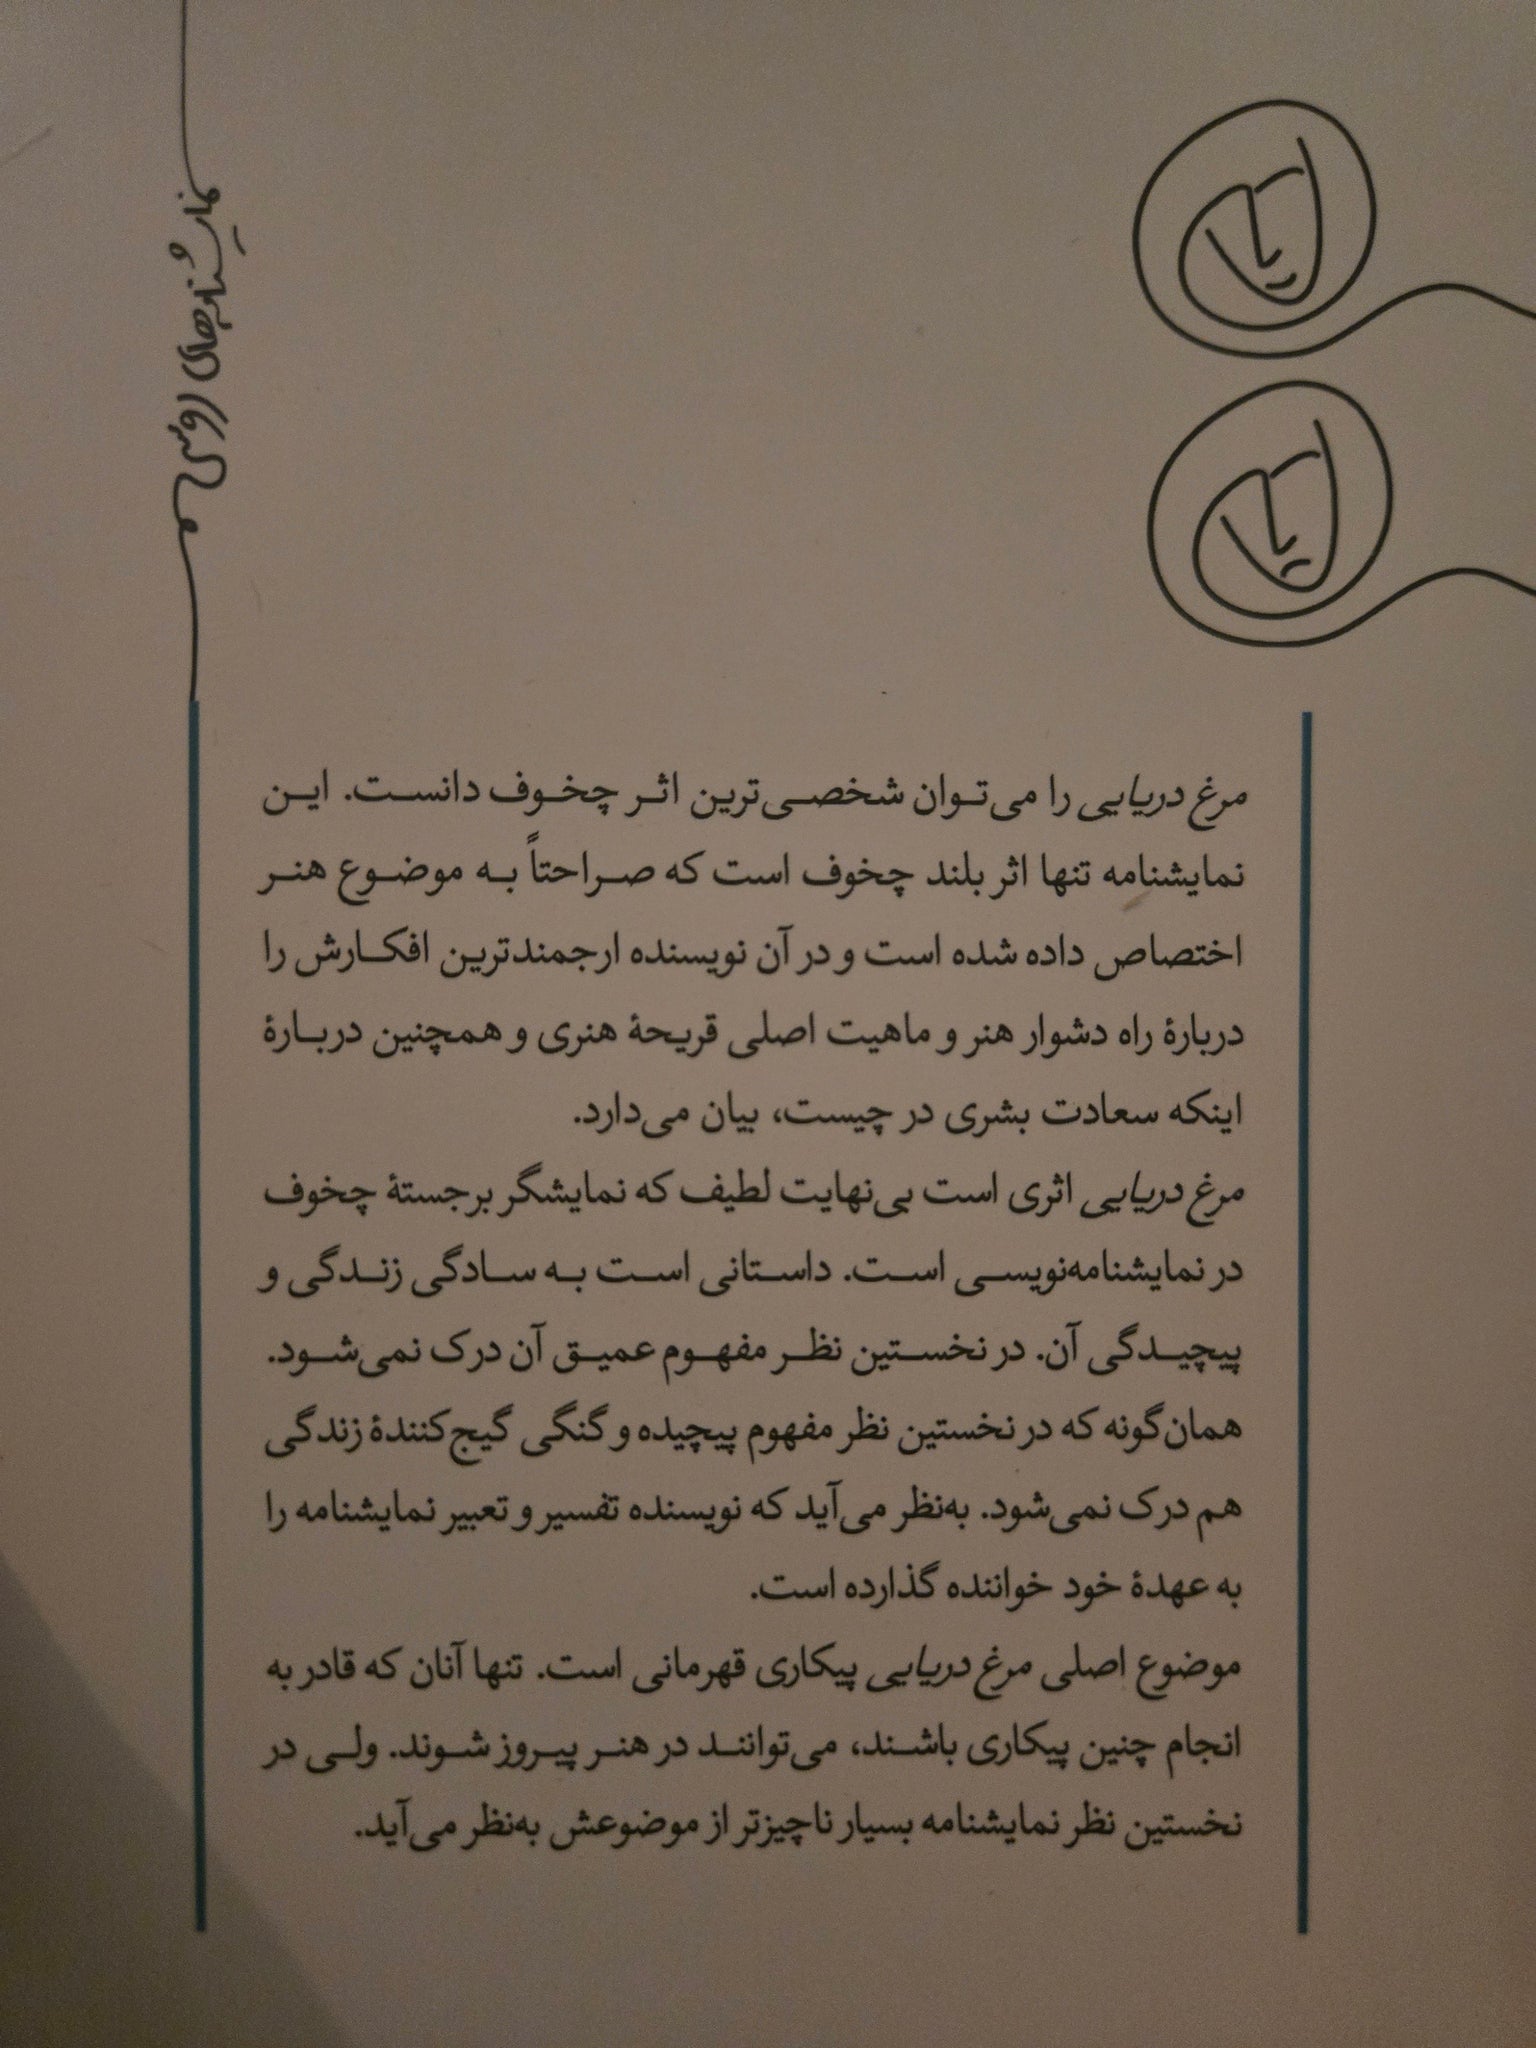 نمایشنامه‌های روسی
مرغ دریایی را می‌توان شخصی‌ترین اثر چخوف دانست. این
نمایشنامه تنها اثر بلند چخوف است که صراحتاً به موضوع هنر
اختصاص داده شده است و در آن نویسنده ارجمندترین افکارش را
دربارهٔ راه دشوار هنر و ماهیت اصلی قریحهٔ هنری و همچنین دربارهٔ
اینکه سعادت بشری در چیست، بیان می‌دارد.
مرغ دریایی اثری است بی‌نهایت لطیف که نمایشگر برجستهٔ چخوف
در نمایشنامه‌نویسی است. داستانی است به سادگی زندگی و
پیچیدگی آن. در نخستین نظر مفهوم عمیق آن درک نمی‌شود.
همان‌گونه که در نخستین نظر مفهوم پیچیده و گنگی گیج‌کنندهٔ زندگی
هم درک نمی‌شود. به‌نظر می‌آید که نویسنده تفسیر و تعبیر نمایشنامه را
به عهدهٔ خود خواننده گذارده است.
موضوع اصلی مرغ دریایی پیکاری قهرمانی است. تنها آنان که قادر به
انجام چنین پیکاری باشند، می‌توانند در هنر پیروز شوند. ولی در
نخستین نظر نمایشنامه بسیار ناچیزتر از موضوعش به‌نظر می‌آید.